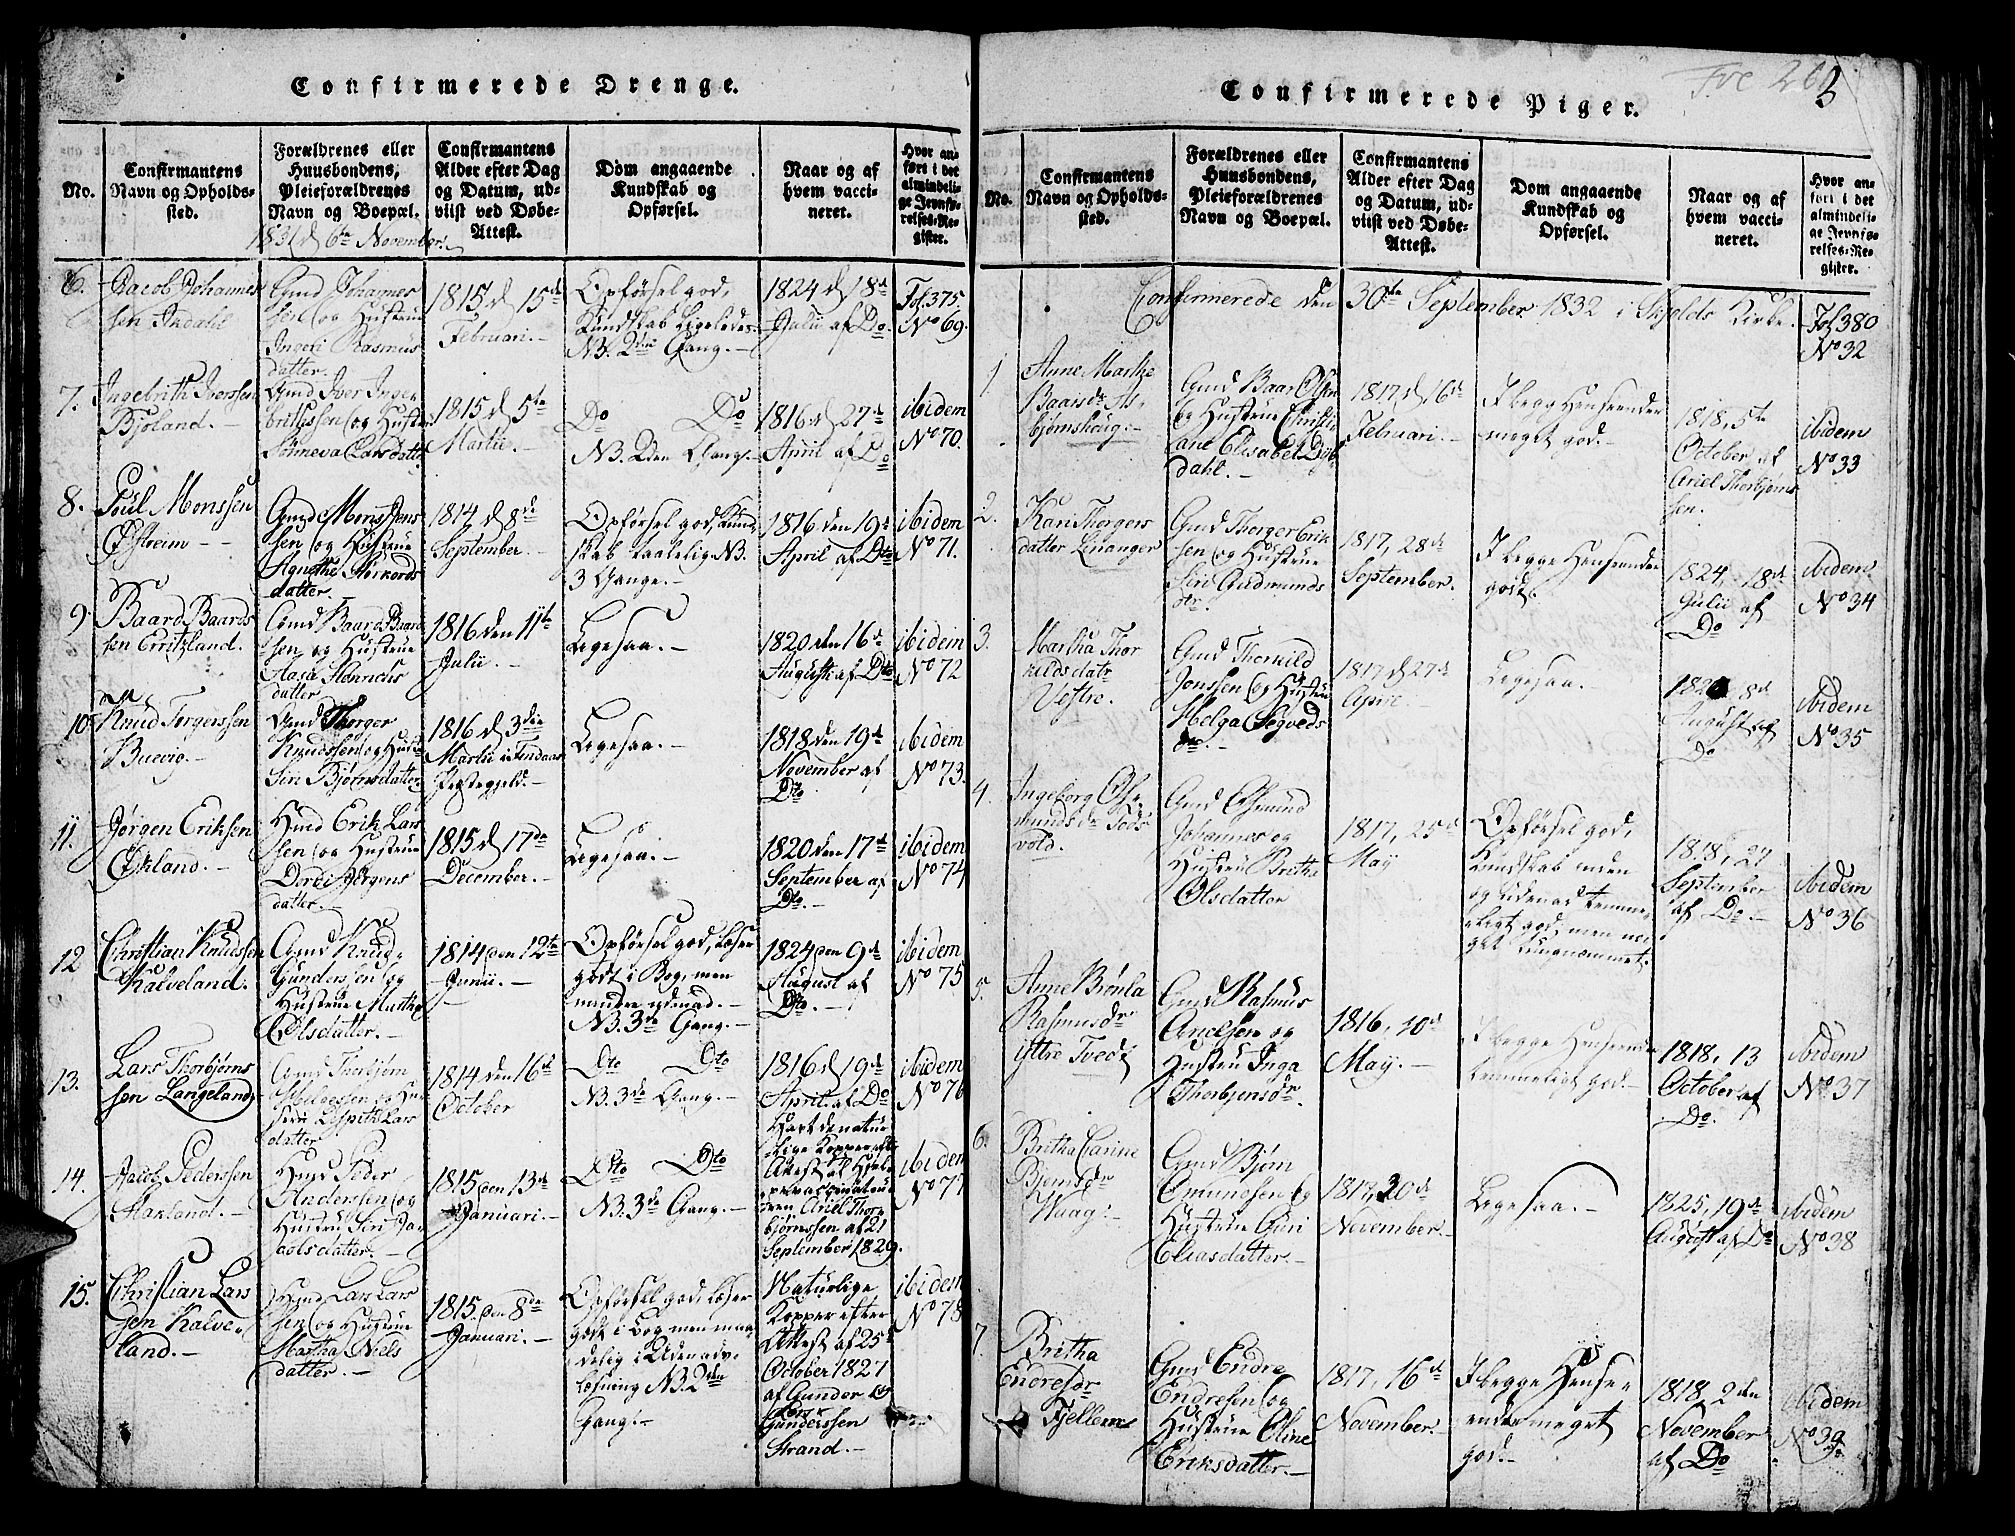 Confirmerede Drenge.
No.
Confirmantens
Navn og Opholds-
sted.
Forældrenes eller
Huusbondens,
Pleieforældrenes
Navn og Boepæl.
Confirmantens
Alder efter Dag
og Datum, ud-
viist ved Døbe-
Attest.
Dom angaaende
Kundskab og
Opførsel.
Naar og af
hvem vacci-
neret.
Hvor an-
ført i det
almindeli-
ge Jevnfø-
relses-Re-
gister.
1831 d 6te November.
6.
Jacob Johannes
sen Indahl
Gmd Johannes
sen og Hustrue
Ingeri Rasmus
datter.
1815 d 15de
Februari.
Opførsel god,
Kundskab ligeledes
NB. 2den Gang.
1824 d 18d
Julii af Do
Fol. 375.
No 69.
7.
Ingebrith Iverssen
Bjoland.
Gmd Iver Inge
brithssen og Hustr
Sønneva Larsdatt
1815 d 5te
Martii.
Do Do
NB. 2den Gang.
1816 d 27d
April af Do
ibidem
No 70.
8.
Poul Monssen
Østreim
Gmd Mons Jens
sen og Hustrue
Agnethe Størkords
datter.
1814 d 8de
September.
Opførsel god, Kund
skab taalelig NB.
3 Gange.
1816 den 19d
April af Dto
ibidem
No 71.
9.
Baard Baards
sen Erritzland.
Gmd Baard Baard
sen og Hustrue
Aasa Hanrichs
datter
1816 den 11te
Julii.
Ligesaa.
1820 den 16d
August af Dto
ibidem
No 72
10.
Knud Torgerssen
Buevig.
Gmd Thorger
Knudssen og Hustr
Siri Bjørnsdatter
1816 d 3die
Martii i Findaas
Præstegjeld.
Ligesaa.
1818 den 19d
November af
Dto
ibidem
No 73.
11.
Jørgen Eriksen
Økland.
Hmd Erik Lars
sen og Hustrue
Dordi Jørgens
datter
1815 d 17de
December.
Ligesaa.
1820 den 17d
September af
Dto.
ibidem
No 74
12
Christian Knudssen
Kalveland.
Gmd Knud
Gunderssen og
Hustrue Martha
Olsdatter.
1814 den 12te
Junii.
Opførsel god, læser
godt i Bog, men
mindre udenad.
NB. 3de Gang.
1824 den 9d
August af
Dto.
ibidem
No 75
13.
Lars Thorbjørns
sen Langeland
Gmd Thorbjørn
og Hu
strue Lispeth Lars
datter
1814 den 16d
October
Dto Dto
NB. 3de Gang.
1816 d 19d
April af Do
ibidem
No 76
14.
Jacob Pederssen
Hakland.
Hmd Peder
Anderssen og
Hustrue Siri Ja
colsdatter.
1815 den 13de
Januari.
Dto Dto
NB. 3de Gang.
Havt de natur
lige Kopper efter
Attest af Hjelpe
vaccinateu
ren Ariel Thor
bjørnssen af 21
September 1829.
ibidem
No 77
15.
Christian Lars
sen Kalve-
land.
Hmd Lars Lars
sen og Hustrue
Martha Niels
datter.
1815 den 8de
Januari.
Opførsel god, læser
godt i Bog men maa
delig i Udenadv
læsning NB. 2den
Gang.
Naturlige
Kopper efter
Attest af 25d
October 1827
af Gunder
Gunderssen
Strand.
ibidem
No 78
Confirmerede Piger.
Fre 26
No.
Confirmantens
Navn og Opholds-
sted.
Forældrenes eller
Huusbondens,
Pleieforældrenes
Navn og Boepæl.
Confirmantens
Alder efter Dag
og Datum, ud-
viist ved Døbe-
Attest.
Dom angaaende
Kundskab og
Opførsel.
Naar og af
hvem vacci-
neret.
Hvor an-
ført i det
almindeli-
ge Jevnfø-
relses-Re-
gister.
Confirmerede den 30te September 1832 i Skjolds Kirke.
Fol 380
No 32
1
Anne Marthe
Baarsdr Ås-
bjørnshoug.
Gmd Baar Olsen
og Hustrue Christi
ane Elisabet Dyb
dahl.
1817 d 16d
Februari.
I begge Henseender
meget god.
1818, 5te
October af
Ariel Thorbjørns
sen.
ibidem
No 33
2.
Kari Thorgers
datter Linanger
Gmd Thorger Erik
sen og Hustrue
Siri Gudmunds
dr.
1817, 28d
September.
I begge Henseender
god.
1824, 18d
Julii af
Do
ibidem
No 34
3.
Martha Thor
kildsdatr
Vestre.
Gmd Thorkild
Jonssen og Hustrue
Helga Sigveds
dr.
1817 d 27d
April
Ligesaa.
8d
August af
Do
ibidem
No 35
4.
Ingeborg Os-
mundsdr Tods
vold.
Gmd Osmund
Johannes og
Hustrue Brithe
Olsdatter
1817, 25d
May
Opførsel god,
Kundskab inden
og udenad temme
ligt god, men no-
get tungnæmmet.
1818, 27
September
af Do.
ibidem
No 36
5.
Anne Brønla
Rasmusdr
ystre Tvedt
Gmd Rasmus
Arielsen og
Hustrue Inga
Thorbjensdr.
1816, 10d
May.
I begge Henseender
temmeligt god.
1818, 13
October af
Do.
ibidem
No 37
6.
Britha Carine
Bjønsdr
Haag.
Gmd Bjørn
Omundsen og
Hustrue Guri
Eliasdatter.
1817, 20d
November.
Ligesaa.
1825, 19d
August af Do
ibidem
No 38
7.
Britha
Endresdr
Fjellem
Gmd Endre
Endresen og
Hustrue Oline
Eriksdatter.
1817, 16d
November.
I begge Hensee-
ender meget
god.
1818, 2den
November
af Do
ibidem
No 39